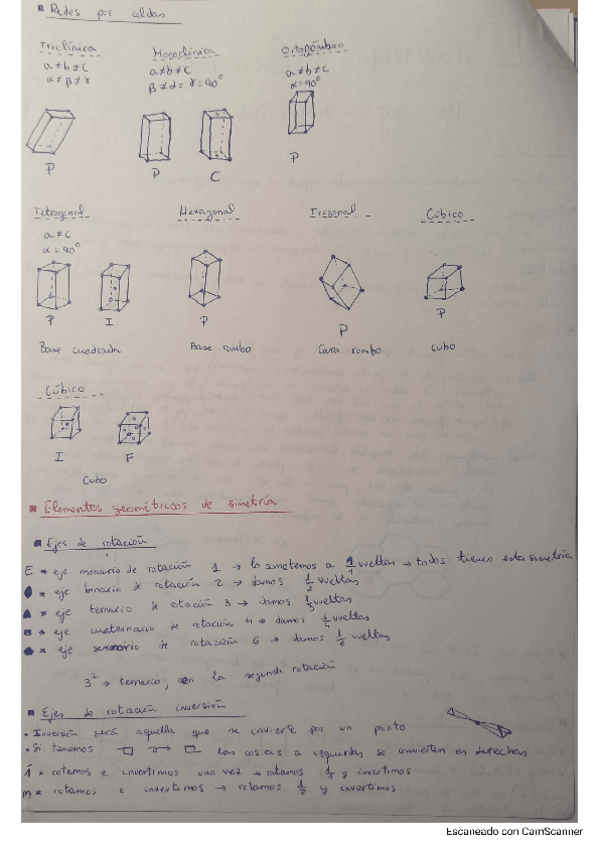 Redes por celdas
Triclínica Monoclínica Ortorómbico
a≠b≠c a≠b≠c a≠b≠c
α≠β≠γ β≠α=γ=90° α=90°
P P C P
Tetragonal Hexagonal Trogonal Cúbico
a≠c
α=90°
P I P P P
Base cuadrada Base rombo Cara rombo Cubo
Cúbico
I F
Cubo
Elementos geométricos de simetría
Ejes de rotación
E * eje monario de rotación 1 → lo sometemos a 1/1 vueltas → todos tienen esta simetría
* eje binario de rotación 2 → damos 1/2 vueltas
* eje ternario de otación 3 → damos 1/3 vueltas
* eje cuaternario de rotación 4 → damos 1/4 vueltas
* eje senario de rotación 6 → damos 1/6 vueltas
3² → ternario, en la segunda rotación
Ejes de rotación inversión
• Inversión será aquella que se invierte por un punto
• Si tenemos las cosas a izquierdas se convierten en derechas
1̄ * rotamos e invertimos una vez → rotamos 1/1 y invertimos
m * rotamos e invertimos → rotamos 1/2 y invertimos
Escaneado con CamScanner